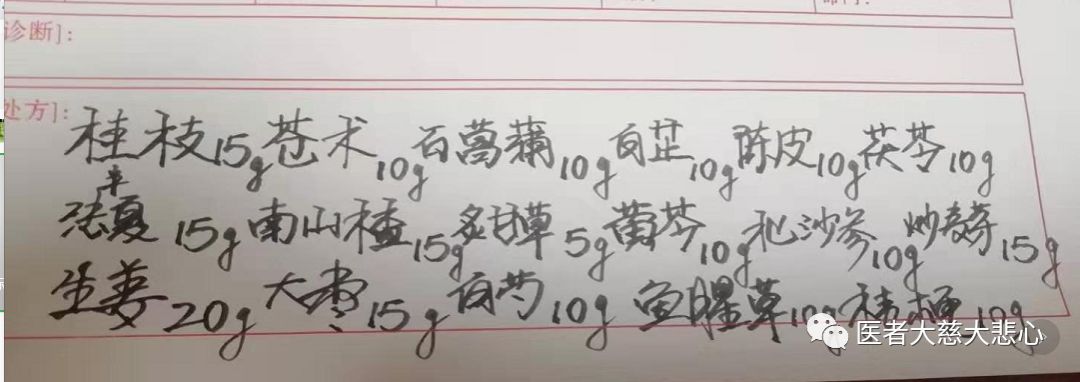 诊断]:
处方]:
桂枝15g 苍术10g 石菖蒲10g 白芷10g 陈皮10g 茯苓10g
法半夏15g 南山楂15g 炙甘草5g 黄芩10g 北沙参10g 炒麦芽15g
生姜20g 大枣15g 白芍10g 鱼腥草10g 桔梗10g
医者大慈大悲心